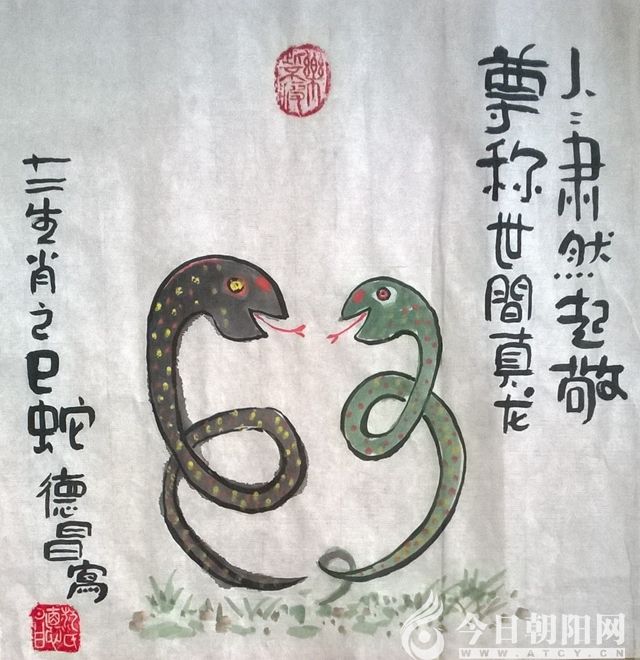 人〻肃然起敬
尊称世間真龙
十二生肖之巳蛇
德昌寫
今日朝阳网
WWW.ATCY.CN